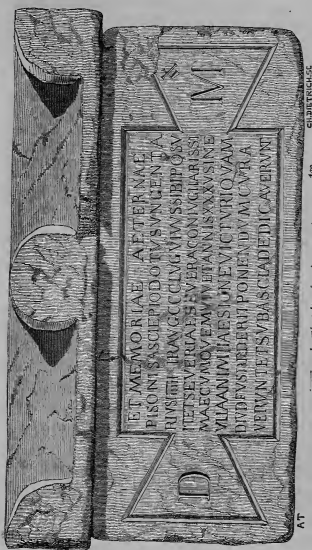 D M
ET MEMORIAE AETERNAE
PISONI S ASCLEPIODOTVS VNGENTA
RIVS IIIIII VIR AVG C C C LVG VIVVS SIBI POSV
IT ET SEVERIAE SEVERA CONIVGI CARISSI
MAE CVM QVEM VIVIT ANNIS XXXV SINE
VLLA ANIMI LAESIONE VICTVRI QVAM
DIV DEVS DEDERIT PONENDVM CVRA
VERVNT ET SVB ASCIA DEDICAVERVNT
AT